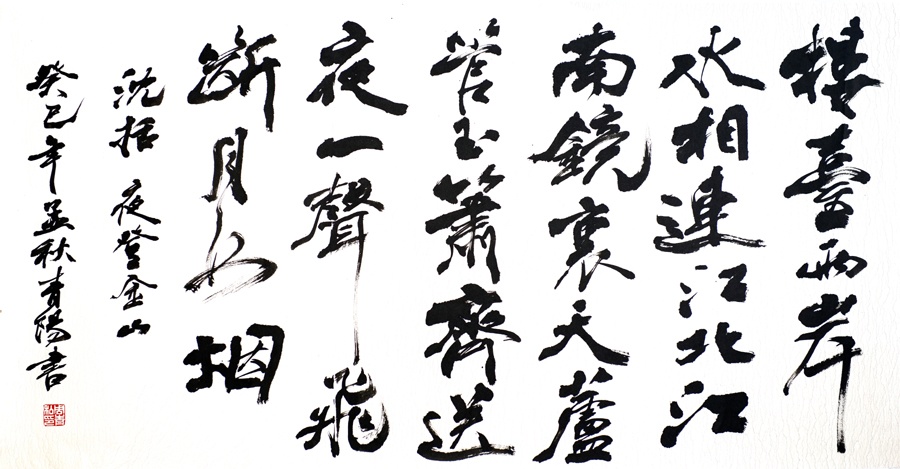 楼臺兩岸
水相連江北江
南鏡裏天蘆
管玉簫齊送
夜一聲飛
断月如烟
沈括 夜登金山
癸巳年孟秋青陽書